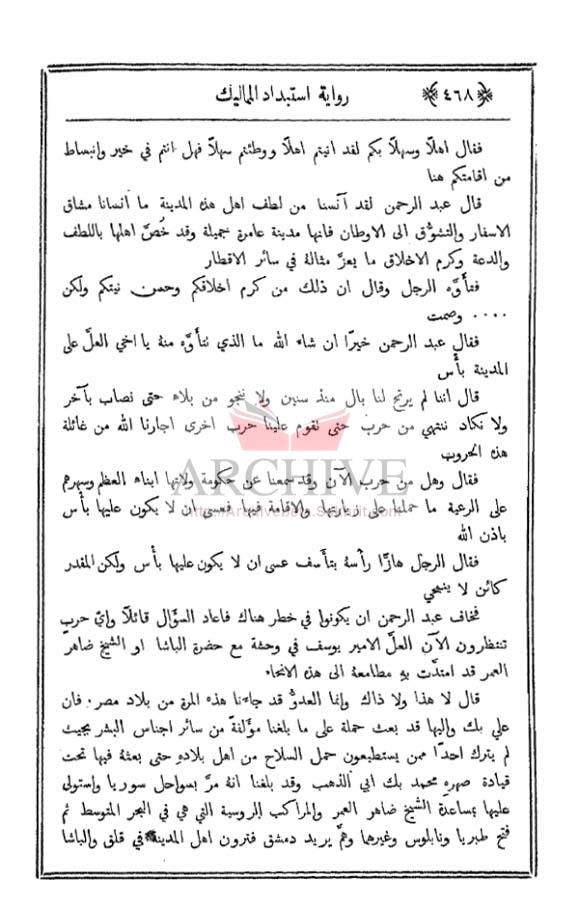 ﴿٤٦٨﴾ رواية استبداد المماليك
فقال اهلاً وسهلاً بكم لقد اتيتم اهلاً ووطئتم سهلاً فهل انتم في خير وانبساط
من اقامتكم هنا
قال عبد الرحمن لقد آنسنا من لطف اهل هذه المدينة ما أنسانا مشاق
الاسفار والتشوُّق الى الاوطان فانها مدينة عامرة جميلة وقد خُصَّ اهلها باللطف
والدعة وكرم الاخلاق ما يعزُّ مثاله في سائر الاقطار
فتأوَّه الرجل وقال ان ذلك من كرم اخلاقكم وحسن نيتكم ولكن
.... وصمت
فقال عبد الرحمن خيرًا ان شاء الله ما الذي نتأوَّه منهُ يا اخي العلَّ على
المدينة بأس
قال اننا لم يرتح لنا بال منذ سنين ولا ننجو من بلاء حتى نصاب بآخر
ولا نكاد ننتهي من حرب حتى تقوم علينا حرب اخرى اجارنا الله من غائلة
هذه الحروب
فقال وهل من حرب الآن وقد سمعنا عن حكومة ولاتها ابناء العظم وسهرهم
على الرعية ما حملنا على زيارتها والاقامة فيها فعسى ان لا يكون عليها بأس
باذن الله
فقال الرجل هازًّا رأسهُ بتأسف عسى ان لا يكون عليها بأس ولكن المقدر
كائن لا ينمحي
فخاف عبد الرحمن ان يكونوا في خطر هناك فاعاد السؤال قائلاً وايُّ حرب
تنتظرون الآن العلَّ الامير يوسف في وحشة مع حضرة الباشا او الشيخ ضاهر
العمر قد امتدَّت به مطامعهُ الى هذه الانحاء
قال لا هذا ولا ذاك وانما العدوُّ قد جاءنا هذه المرة من بلاد مصر. فان
علي بك واليها قد بعث حملة على ما بلغنا مؤلفةً من سائر اجناس البشر بحيث
لم يترك احدًا ممن يستطيعون حمل السلاح من اهل بلاده حتى بعثهُ فيها تحت
قيادة صهره محمد بك ابي الذهب وقد بلغنا انهُ مرَّ بسواحل سوريا واستولى
عليها بمساعدة الشيخ ضاهر العمر والمراكب الروسية التي هي في البحر المتوسط ثم
فتح طبريا ونابلوس وغيرهما وهمَّ يريد دمشق فترون اهل المدينة في قلق والباشا
ARCHIVE
http://Archivebeta.Sakhrit.com